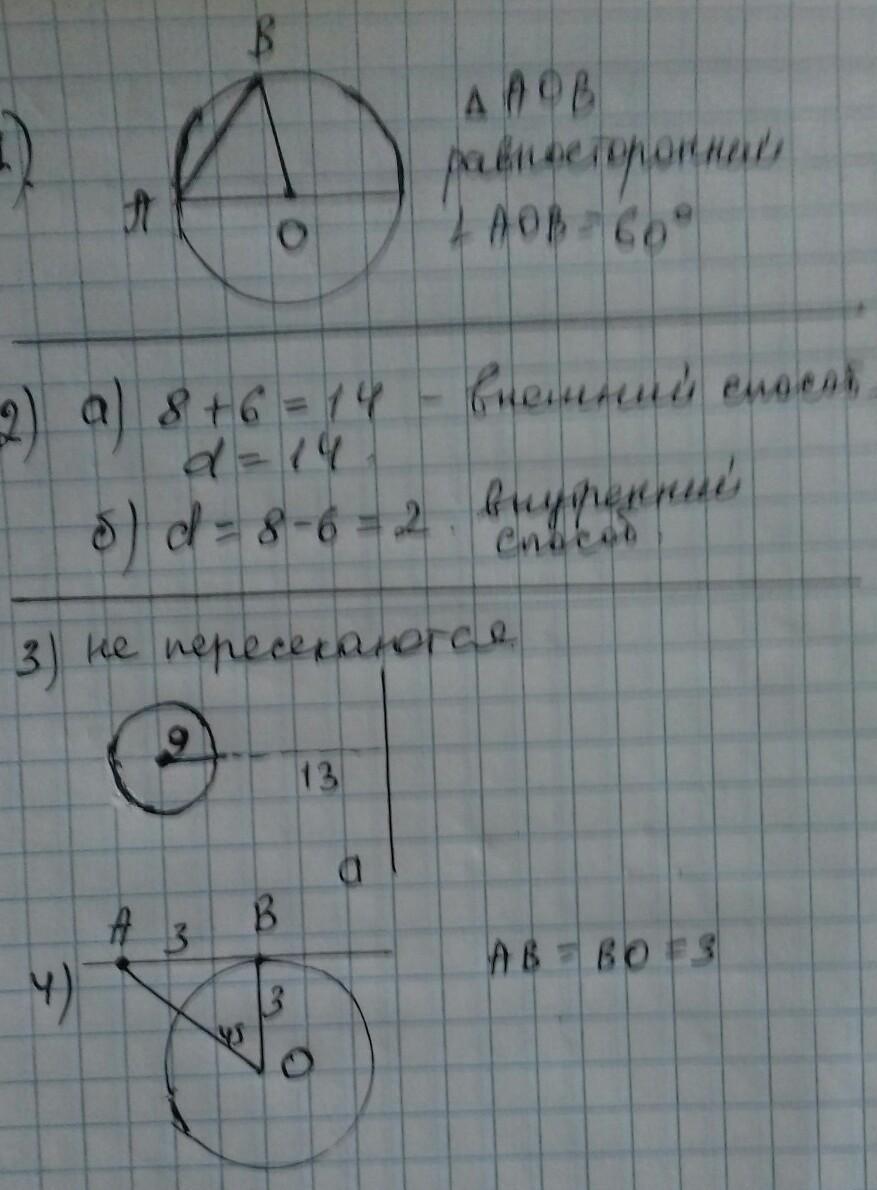 1)
B
A
O
△ AOB
равносторонний
∠ AOB = 60°
2) а) 8 + 6 = 14 - внешний способ.
d = 14.
б) d = 8 - 6 = 2. внутренний
способ.
3) не пересекаются
9
13
a
4)
A 3 B
3
45
O
AB = BO = 3